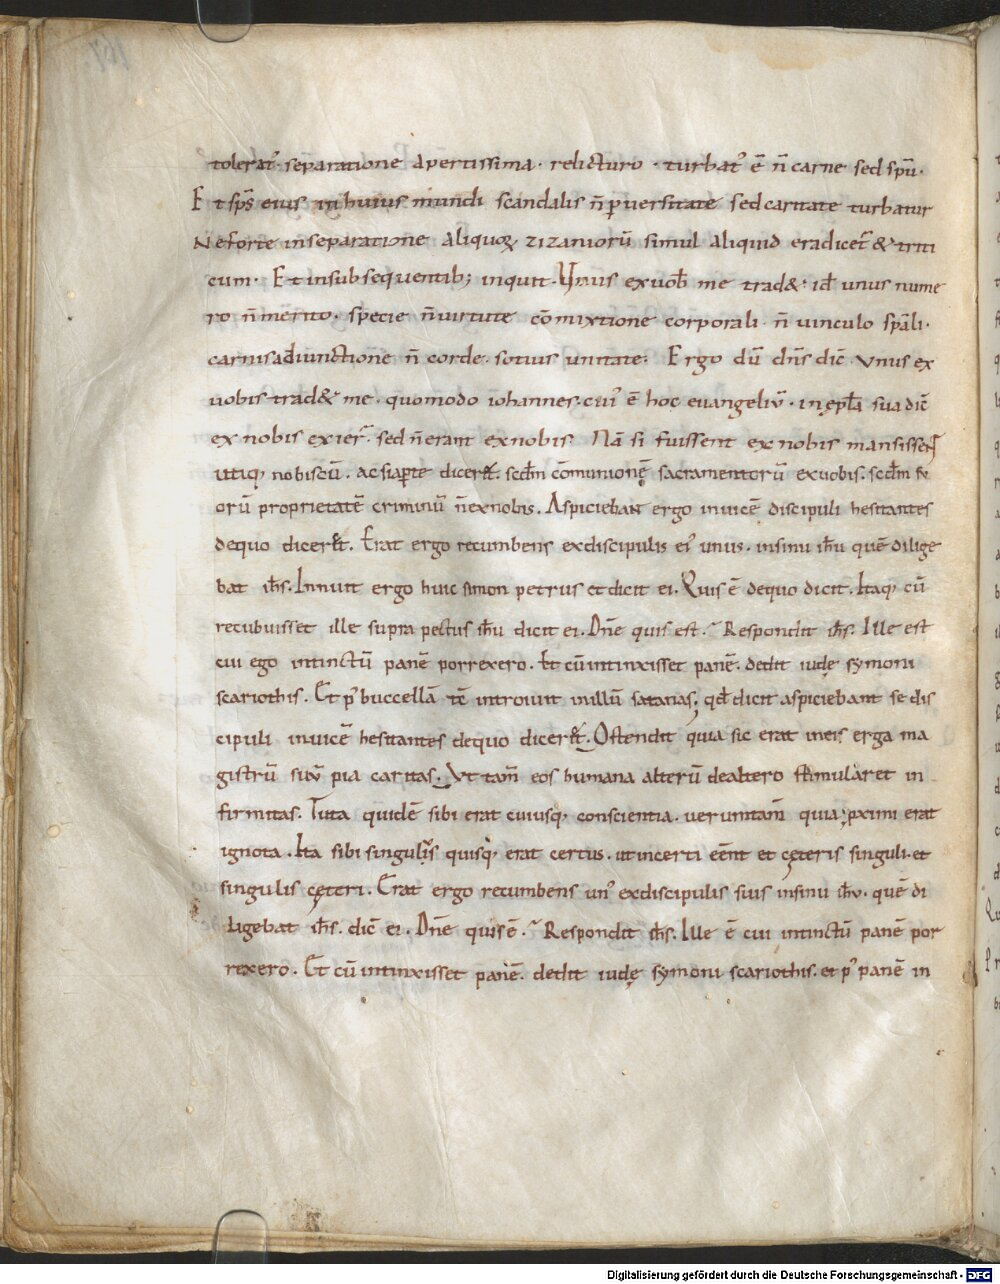 tolerat᷒· separatione apertissima· relicturo· turbat᷒ ē n̄ carne sed spū·
Et sp̄s eius in huius mundi scandalis n̄ ꝑuersitate sed caritate turbatur
Ne forte in separatione aliquoꝝ zizaniorū simul aliquid eradicet᷒ & triti
cum· Et in subsequentib; inquit· Unus ex uob̄ me trad&· id̄ unus nume
ro n̄ merito· specie n̄ uirtute cōmixtione corporali· n̄ uinculo sp̄ali·
carnis adiunctione n̄ corde· sotius unitate· Ergo dū dn̄s dic̄· Vnus ex
uobis trad& me· quomodo iohannes· cui᷒ ē hoc euangeliū· in ep̄la sua dic̄
ex nobis exier᷒· sed n̄ erant ex nobis· Nā si fuissent ex nobis mansissent
utiq; nobiscū· ac si aꝑte dicer&· scd̄m cōmunionē sacramentorū ex uobis· scd̄m su
orū proprietatē criminū n̄ ex nobis· Aspiciebant ergo inuicē discipuli hesitantes
de quo dicer&· Erat ergo recumbens ex discipulis ei᷒ unus· in sinu ih̄u quē dilige
bat ih̄s· Innuit ergo huic simon petrus et dicit ei· Quis ē de quo dicit· Itaq; cū
recubuisset ille supra pectus ih̄u dicit ei· Dn̄e quis est? Respondit ih̄s· Ille est
cui ego intinctū panē porrexero· Et cū intinxisset panē· dedit iudę symoni
scariothis· Et p᷒ buccellā tc̄ introiuit in illū satanas; qd̄ dicit aspiciebant se dis
cipuli inuicē hesitantes de quo dicer&· Ostendit quia sic erat in eis erga ma
gistrū suū pia caritas· Vt tam̄ eos humana alterū de altero stimularet in
firmitas· Tuta quidē sibi erat cuiusq; conscientia· uerumtam̄ quia ꝓximi erat
ignota· Ita sibi singulis quisq; erat certus· ut incerti eēnt et cęteris singuli· et
singulis cęteri· Erat ergo recumbens un᷒ ex discipulis suis in sinu ih̄u· quē di
ligebat ih̄s· dic̄ ei· Dn̄e quis ē? Respondit ih̄s· Ille ē cui intinctū panē por
rexero· Et cū intinxisset panē· dedit iudę symoni scariothis· et p᷒ panē in
Digitalisierung gefördert durch die Deutsche Forschungsgemeinschaft - DFG